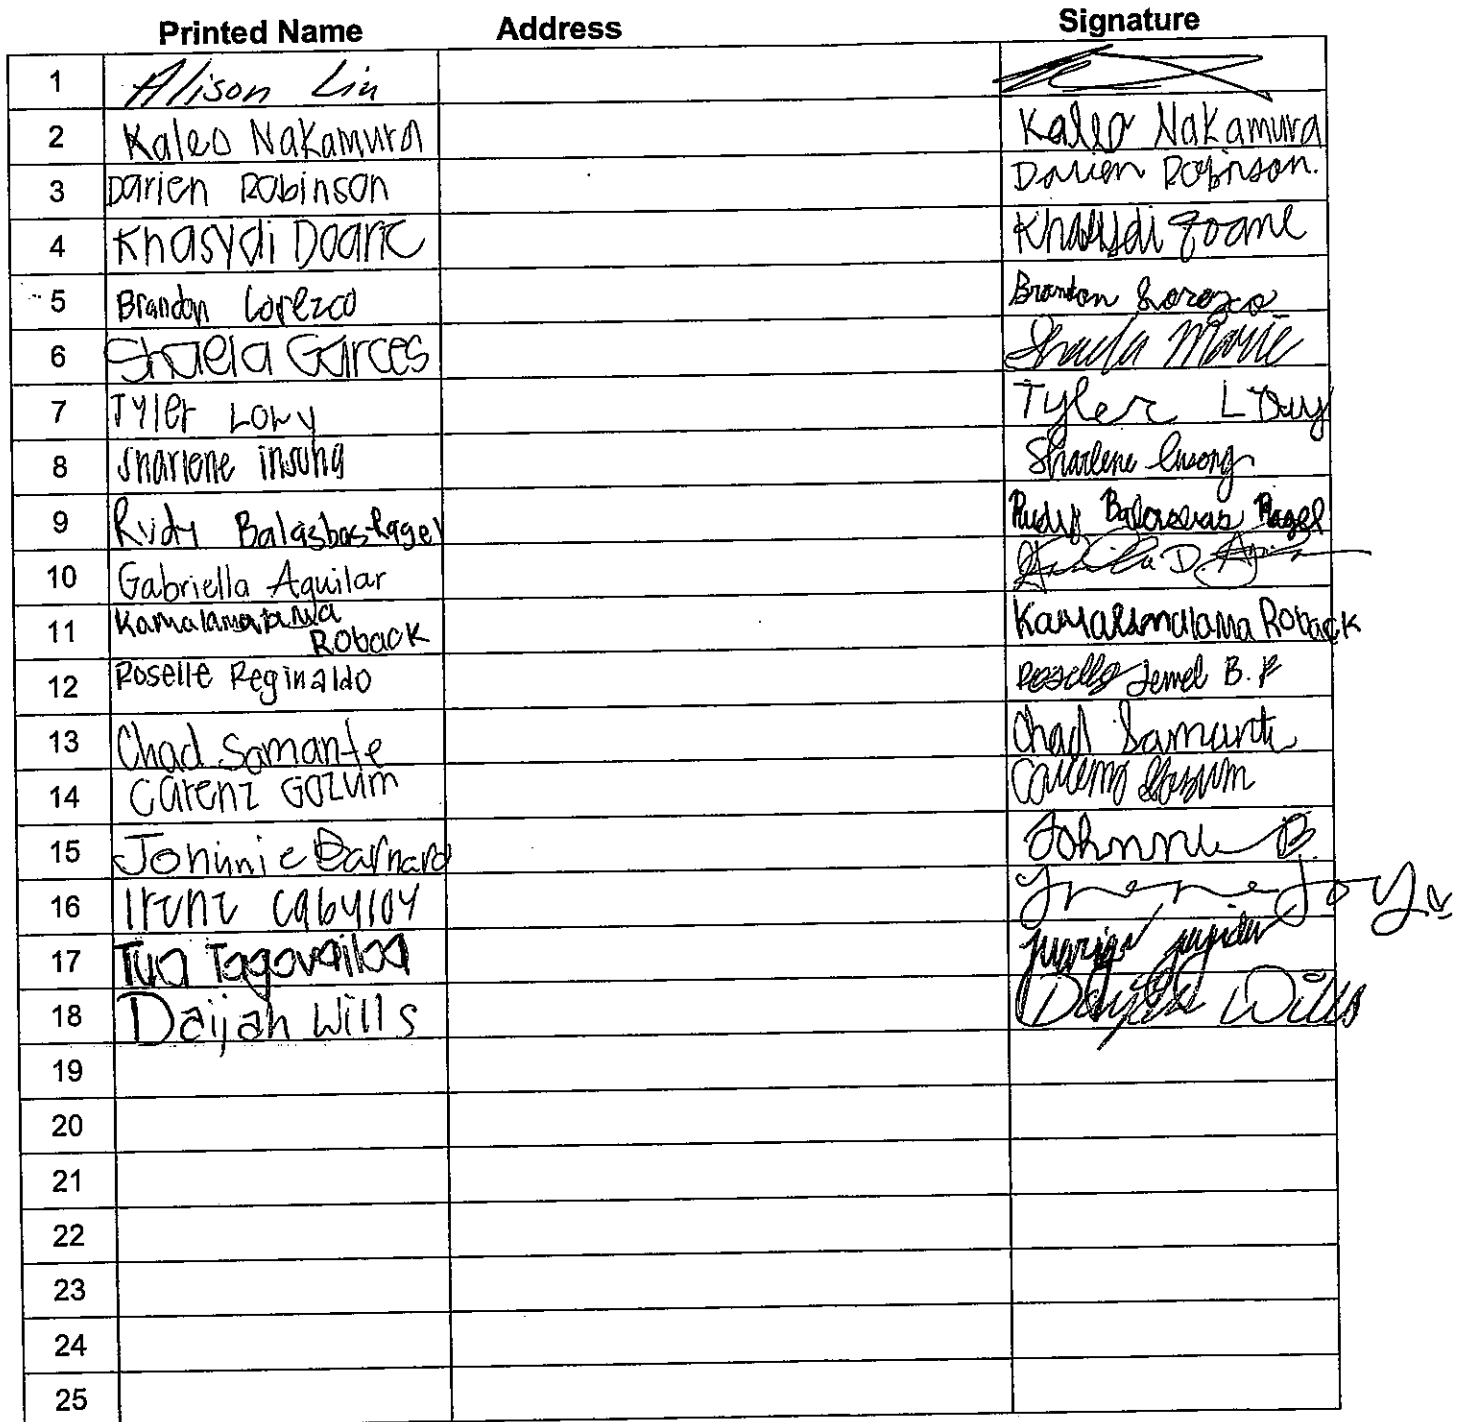 Printed Name Address Signature
1 Alison Lin
2 Kaleo Nakamura Kaleo Nakamura
3 Darien Robinson Darien Robinson.
4 Khasydi Doane Khasydi Doane
5 Brandon Lorezco Brandon Lorezco
6 Shaela Garces Shaela Marie
7 Tyler Tyler
8 Sharlene insong Sharlene Insong
9 Rudy Balasbas-Ragel Rudy Balasbas Ragel
10 Gabriella Aguilar
11 Kamalamalama Kamalamalama Roback
Roback
12 Roselle Reginaldo Roselle Jemel B. R
13 Chad Samante Chad Samante
14 Carenz Gozum Carenz Gozum
15 Johnnie Barnard Johnnie B.
16 Irene Cabyloy Irene Joy
17 Tua Tagovailoa
18 Daijah Wills Daijah Wills
19
20
21
22
23
24
25